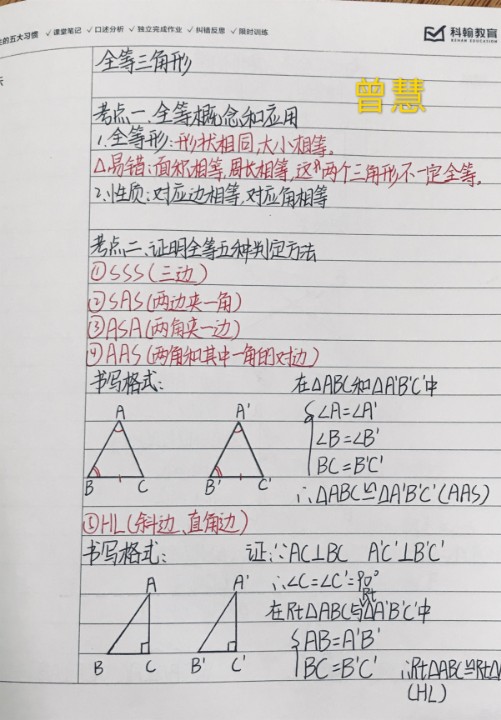 的五大习惯 ✓课堂笔记 ✓口述分析 ✓独立完成作业 ✓纠错反思 ✓限时训练
科翰教育
KEHAN EDUCATION
全等三角形
曾慧
考点一、全等概念和应用
1.全等形:形状相同,大小相等。
△易错:面积相等,周长相等,这两个三角形不一定全等。
2.性质:对应边相等,对应角相等
考点二、证明全等五种判定方法
①SSS(三边)
②SAS(两边夹一角)
③ASA(两角夹一边)
④AAS(两角和其中一角的对边)
书写格式: 在△ABC和△A'B'C'中
∠A=∠A'
∠B=∠B'
BC=B'C'
∴△ABC≌△A'B'C'(AAS)
A A'
B C B' C'
⑤HL(斜边、直角边)
书写格式: 证:∵AC⊥BC A'C'⊥B'C'
∴∠C=∠C'=90°
在Rt△ABC与Rt△A'B'C'中
AB=A'B'
BC=B'C' ∴Rt△ABC≌Rt△
(HL)
A A'
B C B' C'